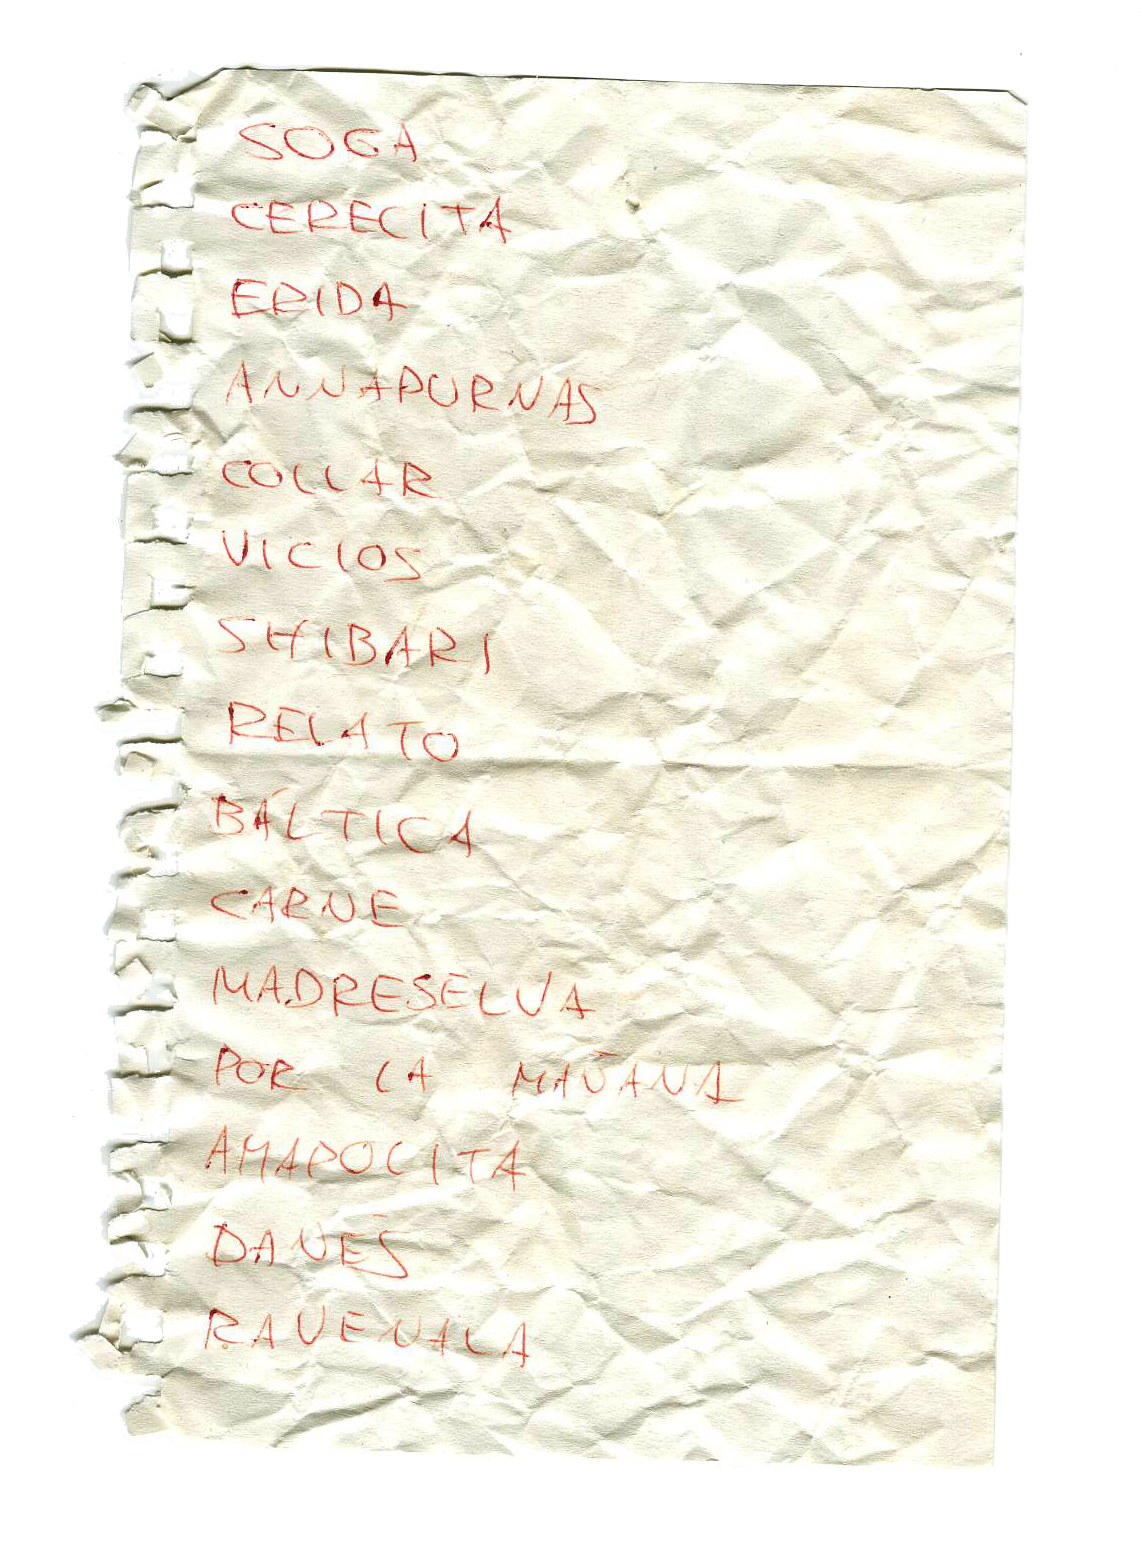 SOGA
CERECITA
ERIDA
ANNAPURNAS
COLLAR
VICIOS
SHIBARI
RELATO
BÁLTICA
CARNE
MADRESELVA
POR LA MAÑANA
AMAPOLITA
DANÉS
RAVENALA